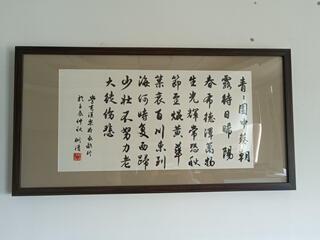 青々園中葵朝
露待日晞陽
春布德澤萬物
生光輝常恐秋
節至焜黃華
葉衰百川東到
海何時復西歸
少壯不努力老
大徒傷悲
漢樂府長歌行
仲秋